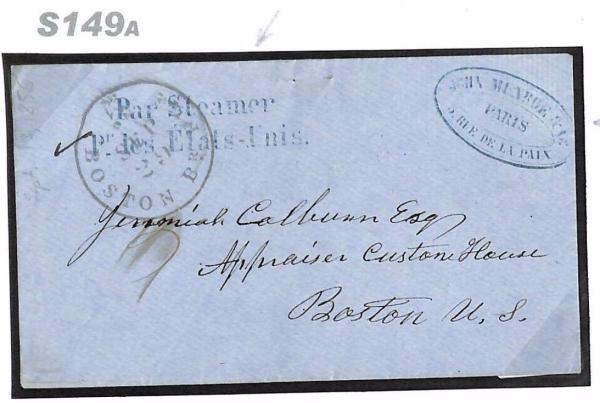 S149A
Par Steamer
pr. les États-Unis.
BOSTON Br.
JOHN MUNROE & Co
PARIS
5, RUE DE LA PAIX
Jeremiah Colburn Esq
Appraiser Custom House
Boston U. S.